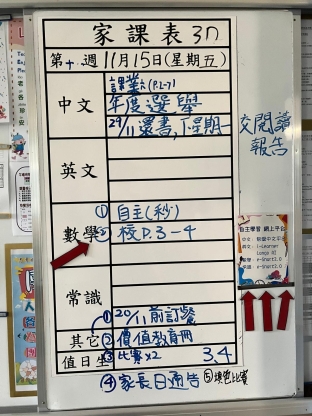 家課表 3D
第十週 11月15日(星期五)
中文
課業六(P.1-7)
年度選舉
29/11還書,1星期
交閱讀
報告
英文
數學
①自主(秒)
②校P.3-4
自主學習 網上平台
常識
其它
①20/11前訂餐
②價值教育冊
③比賽x2
值日生
34
④家長日通告
⑤填色比賽